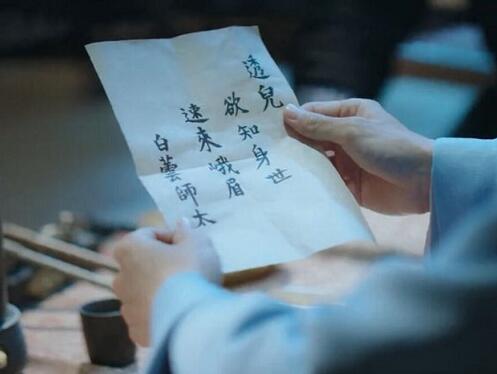 透兒
欲知身世
速來峨眉
白雲師太